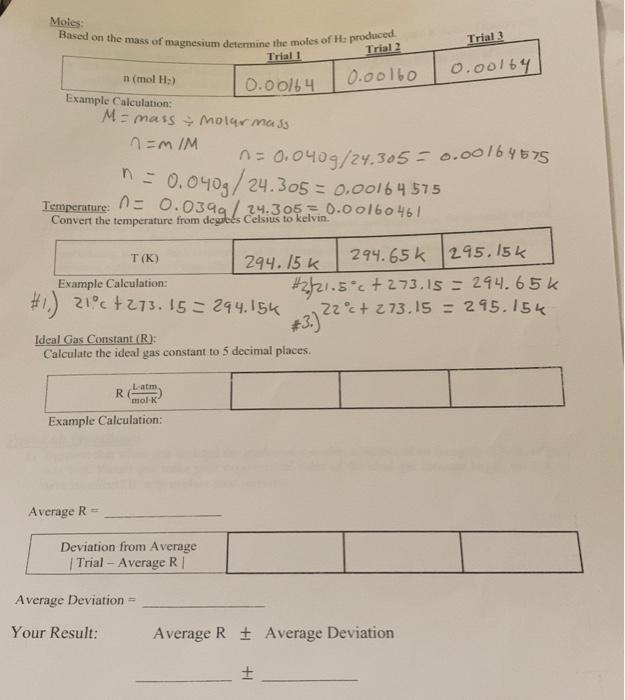 Moles:
Based on the mass of magnesium determine the moles of H₂ produced.
Trial 1 Trial 2 Trial 3
n (mol H₂) 0.00164 0.00160 0.00164
Example Calculation:
M = mass ÷ molar mass
n = m/M
n = 0.040g/24.305 = 0.00164575
n = 0.040g/24.305 = 0.00164575
Temperature: n = 0.039g/24.305 = 0.00160461
Convert the temperature from degrees Celsius to kelvin.
T (K) 294.15k 294.65k 295.15k
Example Calculation: #2) 21.5°c + 273.15 = 294.65k
#1.) 21°c + 273.15 = 294.15k #3.) 22°c + 273.15 = 295.15k
Ideal Gas Constant (R):
Calculate the ideal gas constant to 5 decimal places.
R (L·atm/mol·K)
Example Calculation:
Average R =
Deviation from Average
| Trial – Average R |
Average Deviation =
Your Result: Average R ± Average Deviation
±